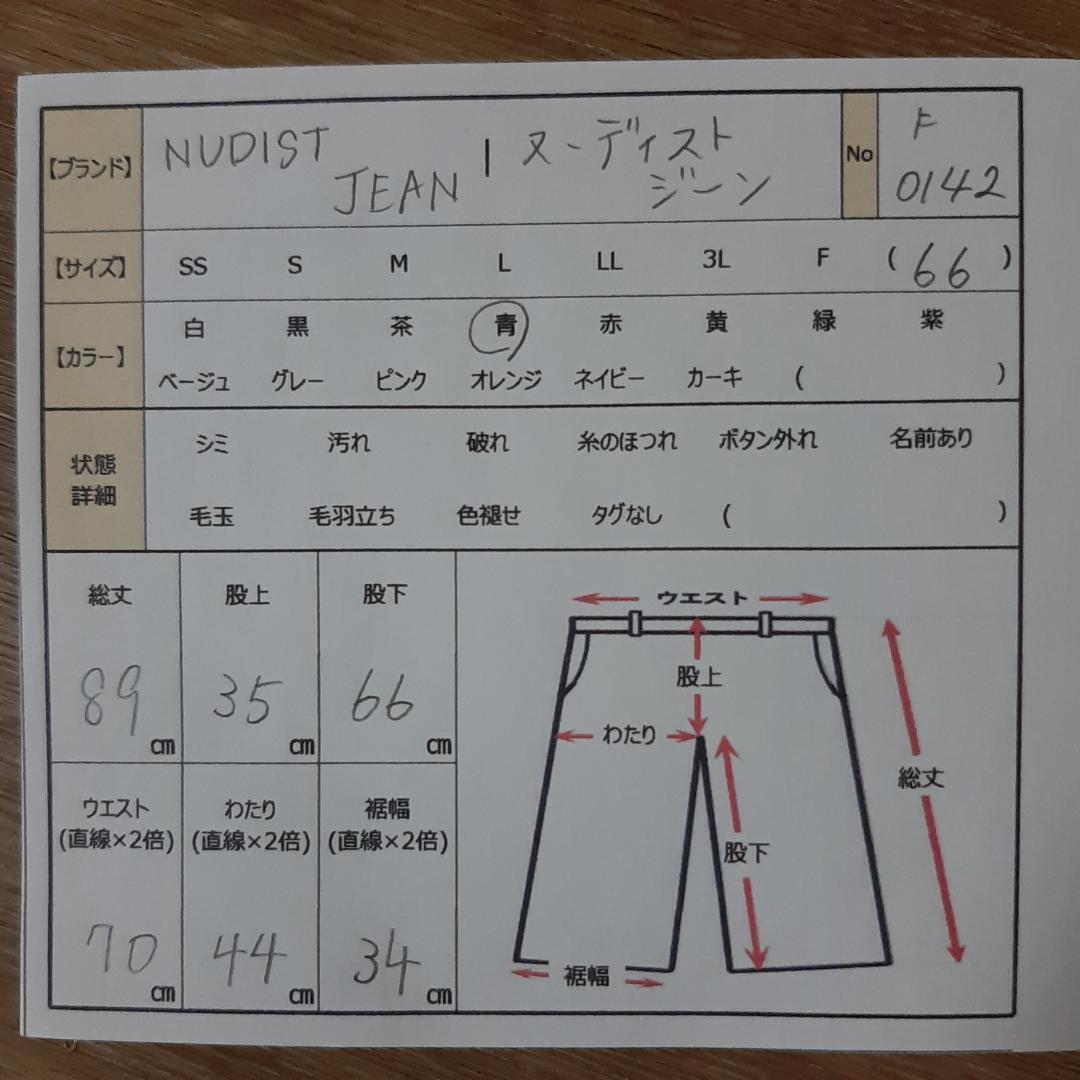 【ブランド】 NUDIST JEAN | ヌーディスト ジーン No F 0142
【サイズ】 SS S M L LL 3L F (66)
【カラー】 白 黒 茶 青 赤 黄 緑 紫
ベージュ グレー ピンク オレンジ ネイビー カーキ ( )
状態
詳細
シミ 汚れ 破れ 糸のほつれ ボタン外れ 名前あり
毛玉 毛羽立ち 色褪せ タグなし ( )
総丈 股上 股下
89cm 35cm 66cm
ウエスト わたり 裾幅
(直線×2倍) (直線×2倍) (直線×2倍)
70cm 44cm 34cm
ウエスト
股上
わたり
総丈
股下
裾幅